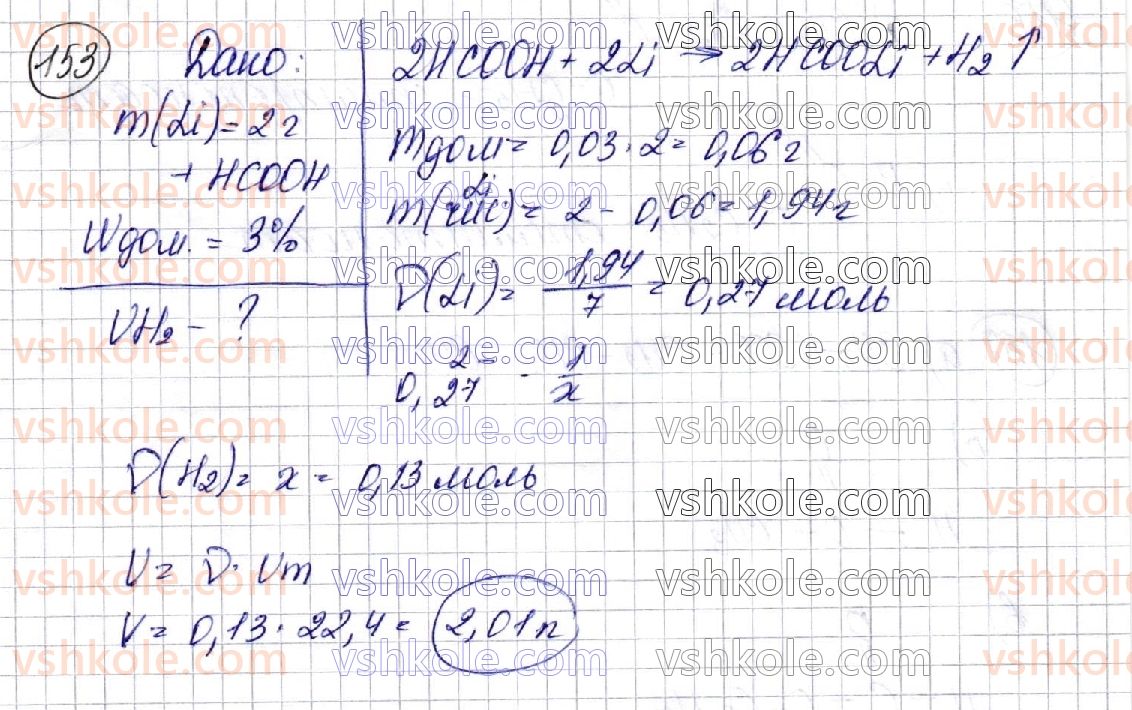 153 Дано:
m(Li) = 2 г
+ HCOOH
Wдом. = 3%
VH2 - ?
2HCOOH + 2Li → 2HCOOLi + H2 ↑
mдом = 0,03 · 2 = 0,06 г
m(чис. Li) = 2 - 0,06 = 1,94 г
ν(Li) = 1,94/7 = 0,27 моль
2/0,27 = 1/x
ν(H2) = x = 0,13 моль
V = ν · Vm
V = 0,13 · 22,4 = 2,01 л
vshkole.com